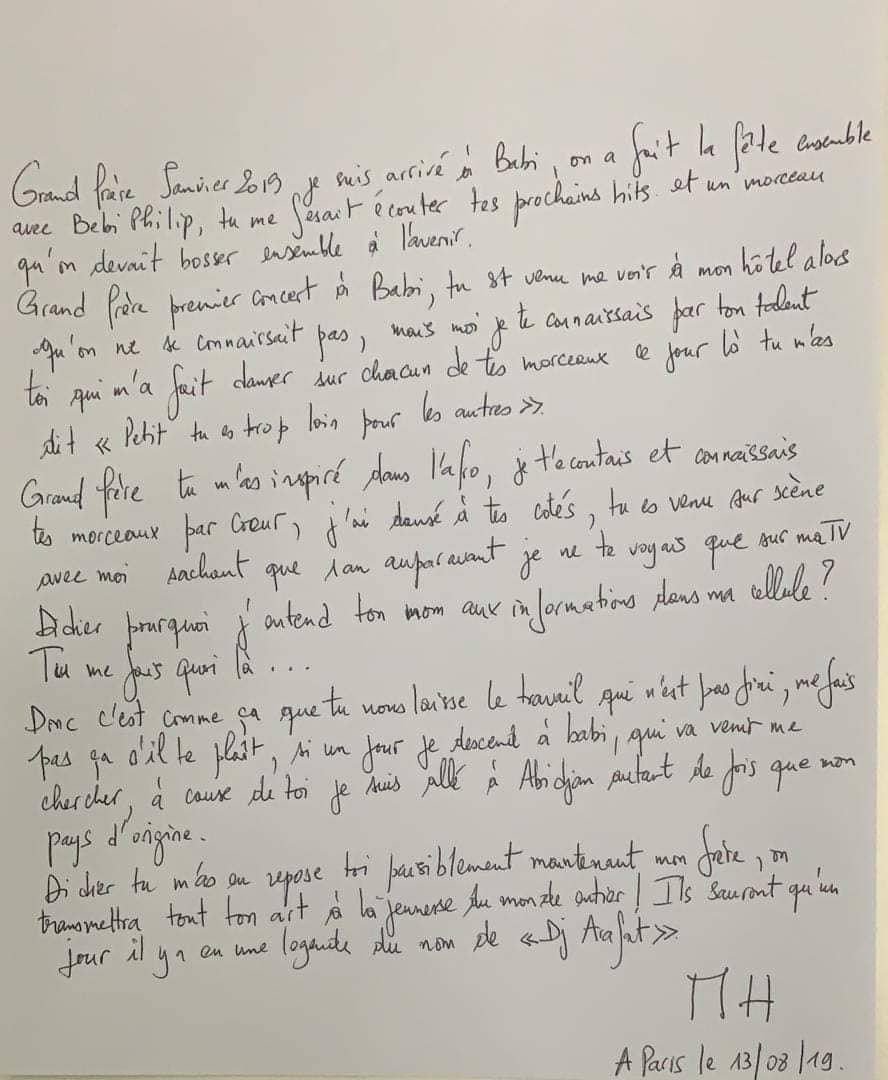 Grand frère Janvier 2019 je suis arrivé à Babi, on a fait la fête ensemble
avec Bebi Philip, tu me fesait écouter tes prochains hits et un morceau
qu'on devait bosser ensemble à l'avenir.
Grand frère premier concert à Babi, tu est venu me voir à mon hôtel alors
qu'on ne se connaissait pas, mais moi je te connaissais par ton talent
toi qui m'a fait danser sur chacun de tes morceaux ce jour là tu m'as
dit « Petit tu es trop loin pour les autres »
Grand frère tu m'as inspiré dans l'afro, je t'ecoutais et connaissais
tes morceaux par cœur, j'ai dansé à tes cotés, tu es venu sur scène
avec moi sachant que 1an auparavant je ne te voyais que sur ma TV
Didier pourquoi j'entend ton nom aux informations dans ma cellule ?
Tu me fais quoi là ...
Donc c'est comme ça que tu nous laisse le travail qui n'est pas fini, me fais
pas ça s'il te plaît, si un jour je descend à babi, qui va venir me
chercher, à cause de toi je suis allé à Abidjan autant de fois que mon
pays d'origine.
Didier tu m'as eu repose toi paisiblement maintenant mon frère, on
transmettra tout ton art à la jeunesse du monde entier ! Ils sauront qu'un
jour il y a eu une légende du nom de « Dj Arafat »
MH
A Paris le 13/08/19.